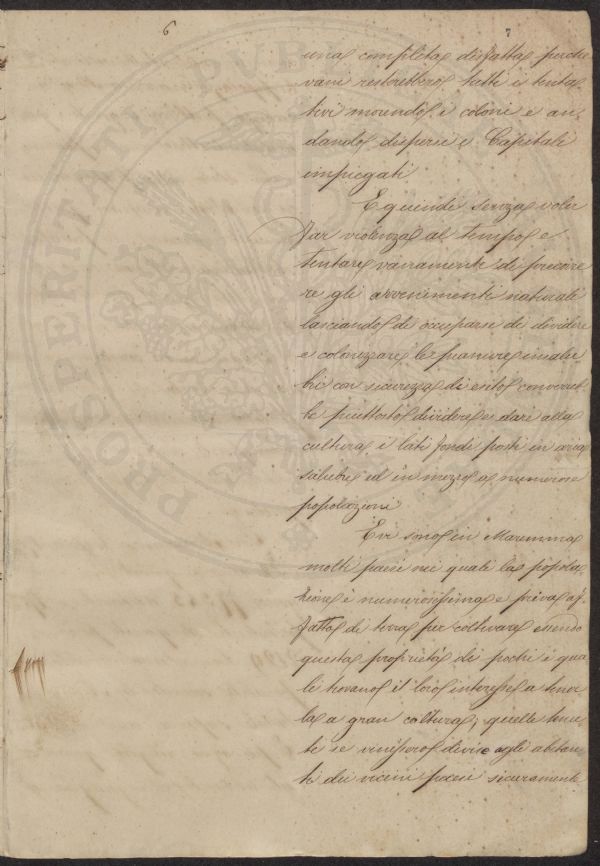 6
7
una completa disfatta perche
vani resterebbero tutti i tenta-
tivi morendo i coloni e an-
dando dispersi i Capitali
impiegati
E quindi senza voler
far violenza al tempo e
tentare vanamente di precorre
re gli avvenimenti naturali
lasciando di occuparsi di dividere
e colonizzare le pianure insalu
bri con sicurezza di esito converreb
be piuttosto dividere e dare alla
cultura i lati fondi posti in aria
salubre ed in mezzo a numerose
popolazioni
Evi sono in Maremma
molti paesi nei quali la popola
zione è numerosissima e priva af-
fatto di terra per coltivare essendo
questa proprietà di pochi i qua
li trovano il loro interesse a tener
la a gran coltura, quelle tenu
te se venissero divise agli abitan
ti dei vicini paesi sicuramente
PROSPERITATI PUBL